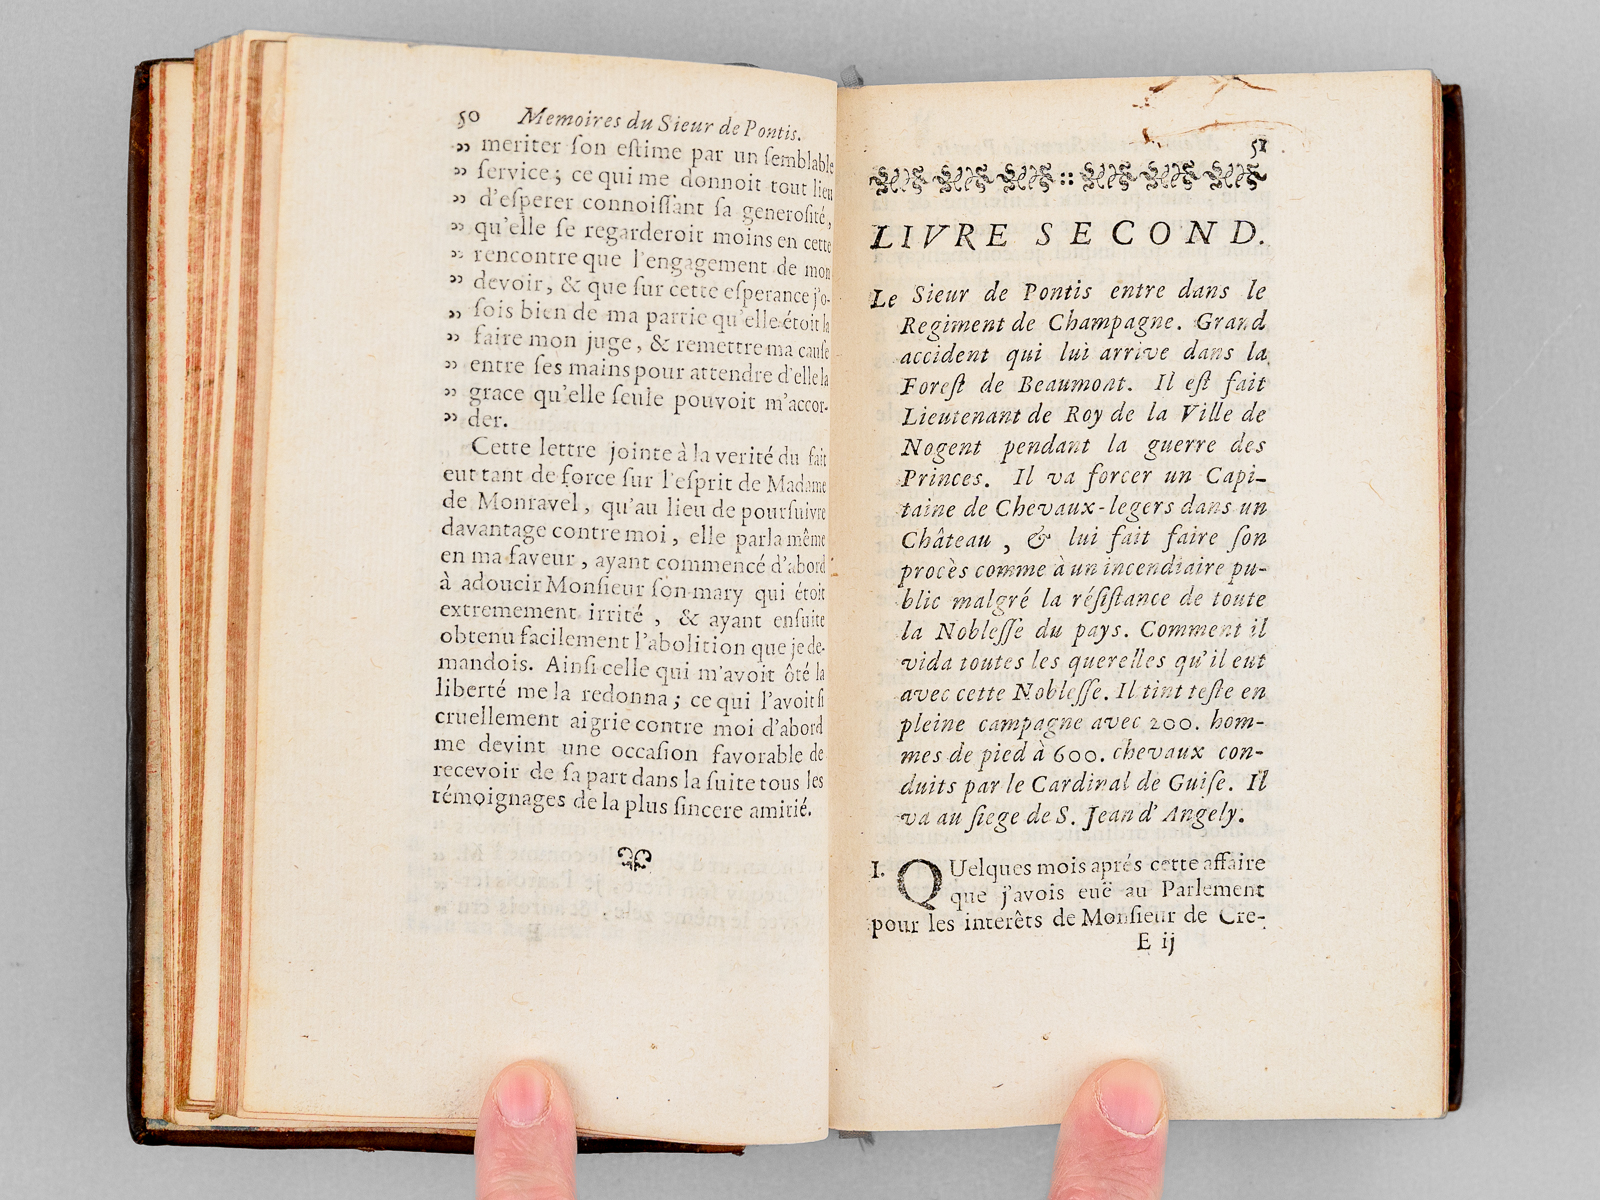 50 Memoires du Sieur de Pontis.
„ meriter ſon eſtime par un ſemblable
„ ſervice ; ce qui me donnoit tout lieu
„ d'eſperer connoiſſant ſa generoſité,
„ qu'elle ſe regarderoit moins en cette
„ rencontre que l'engagement de mon
„ devoir, & que ſur cette eſperance j'o-
„ ſois bien de ma partie qu'elle étoit la
„ faire mon juge, & remettre ma cauſe
„ entre ſes mains pour attendre d'elle la
„ grace qu'elle ſeule pouvoit m'accor-
„ der.
Cette lettre jointe à la verité du fait
eut tant de force ſur l'eſprit de Madame
de Monravel, qu'au lieu de pourſuivre
davantage contre moi, elle parla même
en ma faveur, ayant commencé d'abord
à adoucir Monſieur ſon mary qui étoit
extremement irrité, & ayant enſuite
obtenu facilement l'abolition que je de-
mandois. Ainſi celle qui m'avoit ôté la
liberté me la redonna ; ce qui l'avoit ſi
cruellement aigrie contre moi d'abord
me devint une occaſion favorable de
recevoir de ſa part dans la ſuite tous les
témoignages de la plus ſincere amitié.
51
LIVRE SECOND.
Le Sieur de Pontis entre dans le
Regiment de Champagne. Grand
accident qui lui arrive dans la
Foreſt de Beaumont. Il eſt fait
Lieutenant de Roy de la Ville de
Nogent pendant la guerre des
Princes. Il va forcer un Capi-
taine de Chevaux-legers dans un
Château, & lui fait faire ſon
procès comme à un incendiaire pu-
blic malgré la réſiſtance de toute
la Nobleſſe du pays. Comment il
vida toutes les querelles qu'il eut
avec cette Nobleſſe. Il tint teſte en
pleine campagne avec 200. hom-
mes de pied à 600. chevaux con-
duits par le Cardinal de Guiſe. Il
va au ſiege de S. Jean d'Angely.
I. QUelques mois aprés cette affaire
que j'avois euë au Parlement
pour les interêts de Monſieur de Cre-
E ij